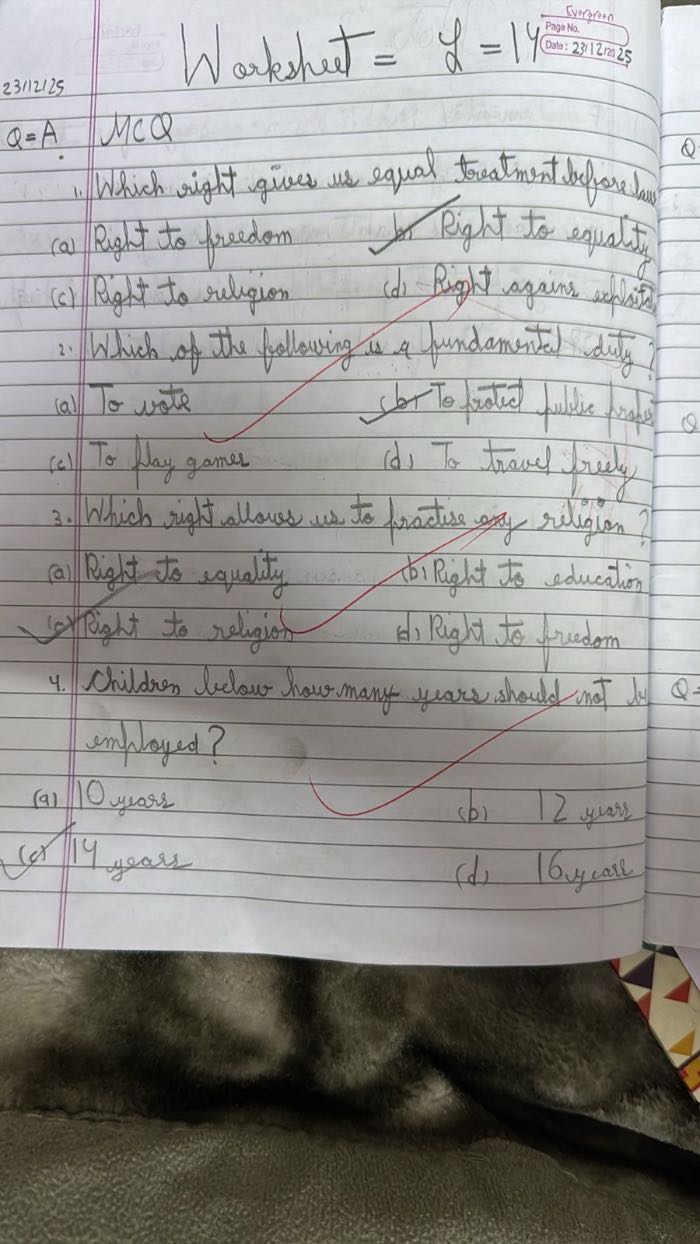 Evergreen
Page No.
Date: 23/12/2025
Worksheet = L = 14
23/12/25
Q=A. MCQ
1. Which right gives us equal treatment before law
(a) Right to freedom (b) Right to equality
(c) Right to religion (d) Right agains exploitat
2. Which of the following is a fundamental duty?
(a) To vote (b) To protect public proper
(c) To play games (d) To travel freely
3. Which right allows us to practise any religion?
(a) Right to equality (b) Right to education
(c) Right to religion (d) Right to freedom
4. Children below how many years should not by
employed?
(a) 10 years (b) 12 years
(c) 14 years (d) 16 years
Q
Q
Q=